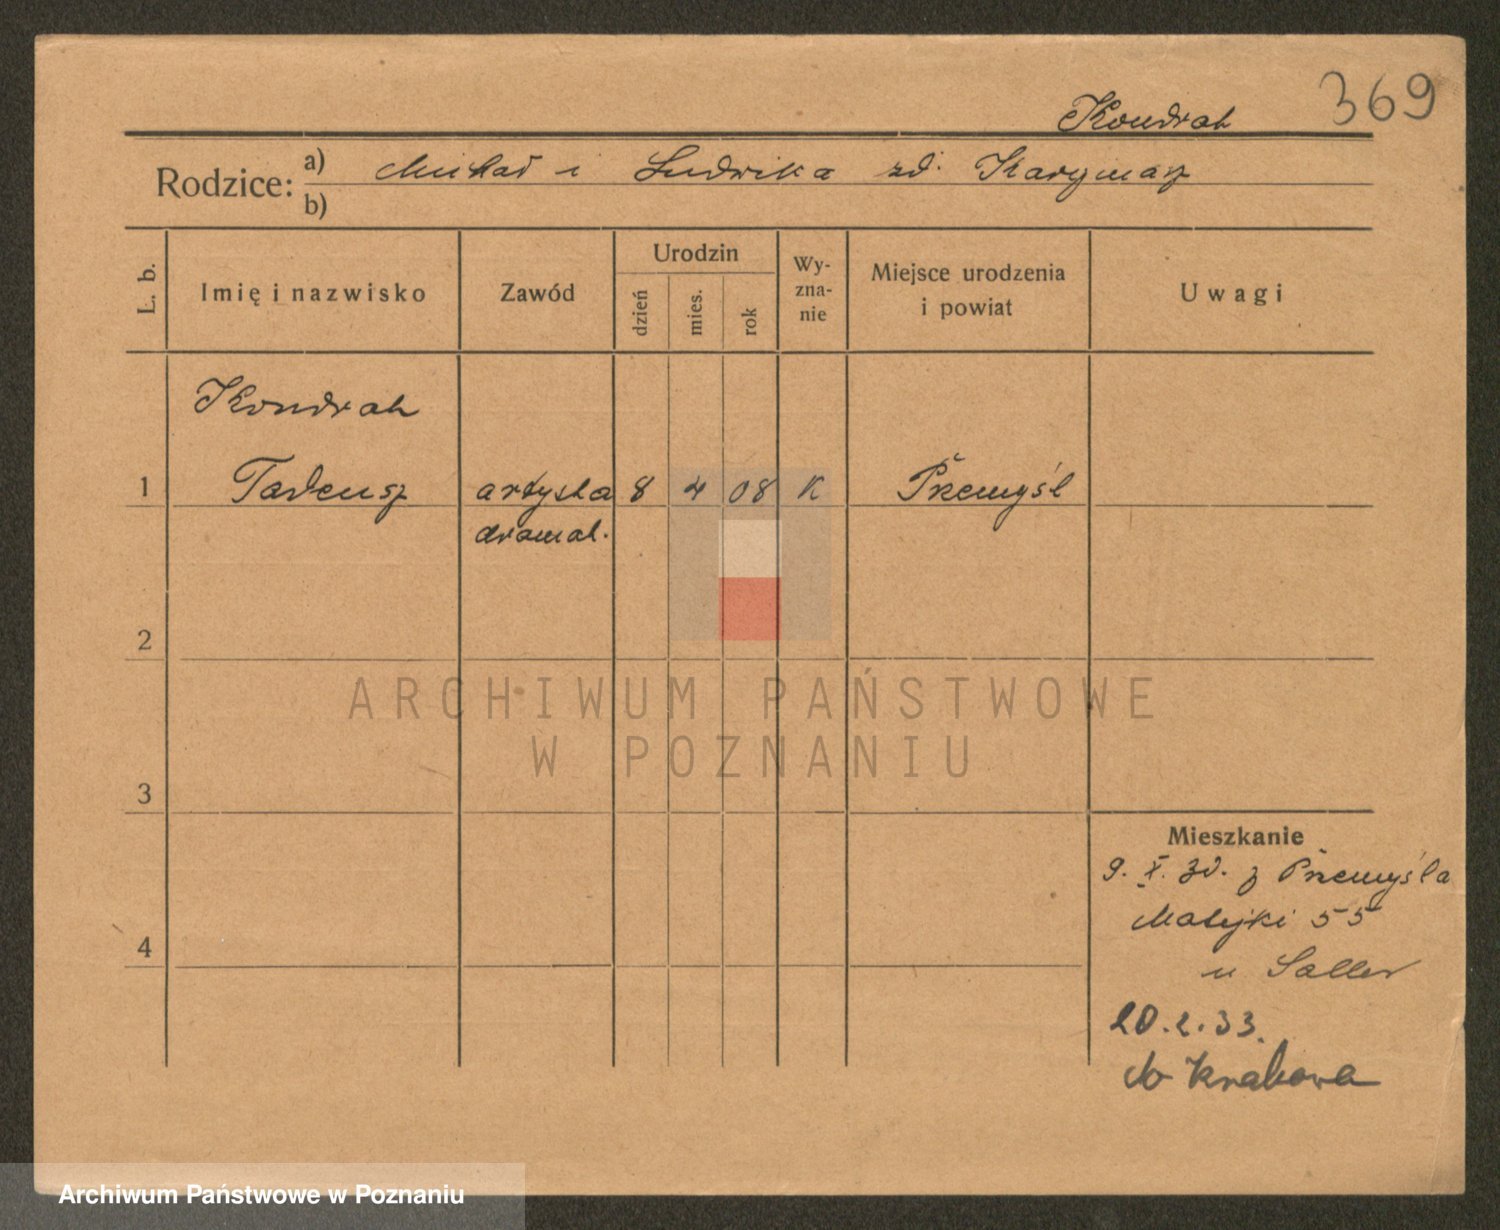 369
Kondrat
Rodzice: a) Michał i Ludwika zd.
b)
L. b.
Imię i nazwisko
Zawód
Urodzin
dzień
mies.
rok
Wy-
zna-
nie
Miejsce urodzenia
i powiat
Uwagi
Kondrat
1 Tadeusz artysta 8 4 08 K Přemyśl
dramat.
2
3
4
Mieszkanie
9. X. 30. z Přemyśla
Matejki 55
u Saller
20.2.33.
do Krakowa
ARCHIWUM PAŃSTWOWE
W POZNANIU
Archiwum Państwowe w Poznaniu